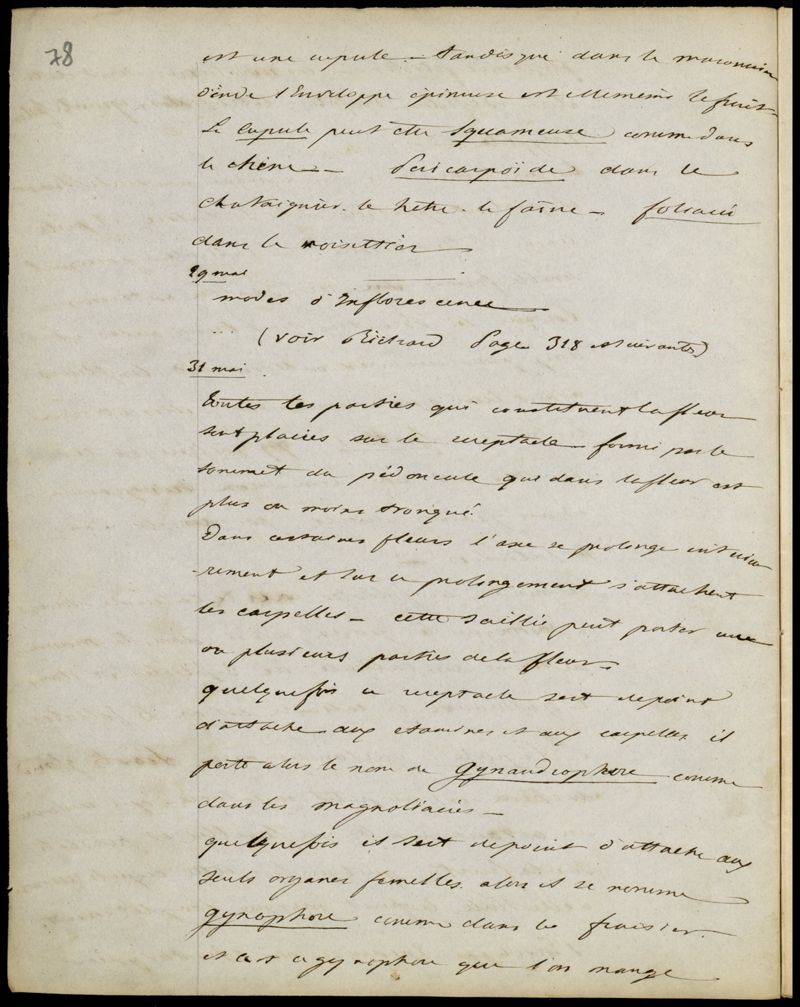 78
est une cupule – tandisque dans le maronnier
d'inde l'Enveloppe épineuse est ellememe le fruit –
La Cupule peut etre Squameuse comme dans
le chêne – Pericarpoïde dans le
chataignier. le hêtre. le faîne – foliacée
dans le noisettier
29 mai
modes d'Inflorescence
(voir Richard Page 318 et suivantes)
31 mai
Toutes les parties qui constituent la fleur
sont placées sur le receptacle formé par le
sommet du pédoncule qui dans la fleur est
plus ou moins tronqué.
Dans certaines fleurs l'axe se prolonge interieu
-rement et sur ce prolongement s'attachent
les carpelles – cette saillie peut porter une
ou plusieurs parties de la fleur –
quelquefois ce receptacle sert de point
d'attache aux etamines et aux carpelles il
porte alors le nom de Gynandrophore comme
dans les magnoliacées –
quelquefois il sert de point d'attache aux
seuls organes femelles. alors il se nomme
gynophore comme dans le fraisier.
et c'est ce gynophore que l'on mange